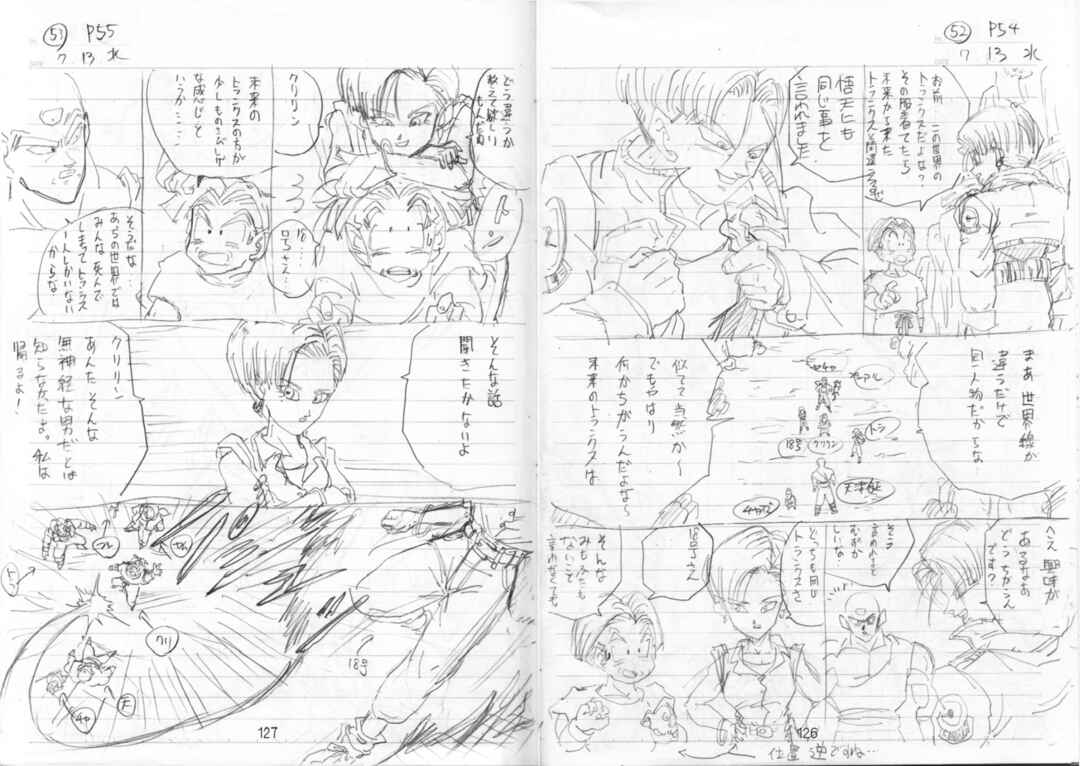 52 P54
7 13 水
お前 この世界の
トランクスだよな?
その服着てたら
未来から来た
トランクスと間違えるぞ
悟天にも
同じ事を
言われました
まあ 世界線が
違うだけで
同一人物だからな
ヤムチャ
トラ
18号
クリリン
天津飯
似てて当然か〜
でもやはり
何かちがうんだよなぁ
未来のトランクスは
へえ 興味が
あるなぁ
どうちがうん
ですか?
そう
言われると
むずか
しいな
どっちも同じ
トランクスさ
18号さん
そんな
みもふたも
ないこと
言わなくても
位置 逆ですね…
126
51 P55
7 13 水
どう違うか
教えて欲しい
もんだね
ト
18
号さん…
クリリン
未来の
トランクスの方が
少しものさびしげ
な感じと
いうか……
そうだな…
あちの世界では
みんな死んで
しまってトランクス
一人しかいない
からな
そんな話
聞きたかないよ
クリリン
あんた そんな
無神経な男だとは
知らなかったよ。私は
帰るよ!
ト
クリ
チャ
天
18号
127